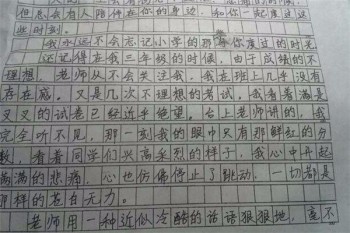 但总会有人陪伴在你的身边，和你一起度过这
些时刻。
我永远不会忘记小学的那 你度过的时光
还记得在我三年级的时候，由于成绩的不
理想，老师从不会关注我，我在班上几乎没有
存在感。又是几次不理想的考试，我看着满是
叉叉的试卷已经近乎绝望。台上老师讲的，我
完全听不见，那一刻我的眼中只有那鲜红的分
数，看着同学们兴高采烈的样子，我心中升起
满满的悲痛，心也仿佛停止了跳动，一切都是
那样的苍白无力。
老师用一种近似冷酷的话语狠狠地，毫不